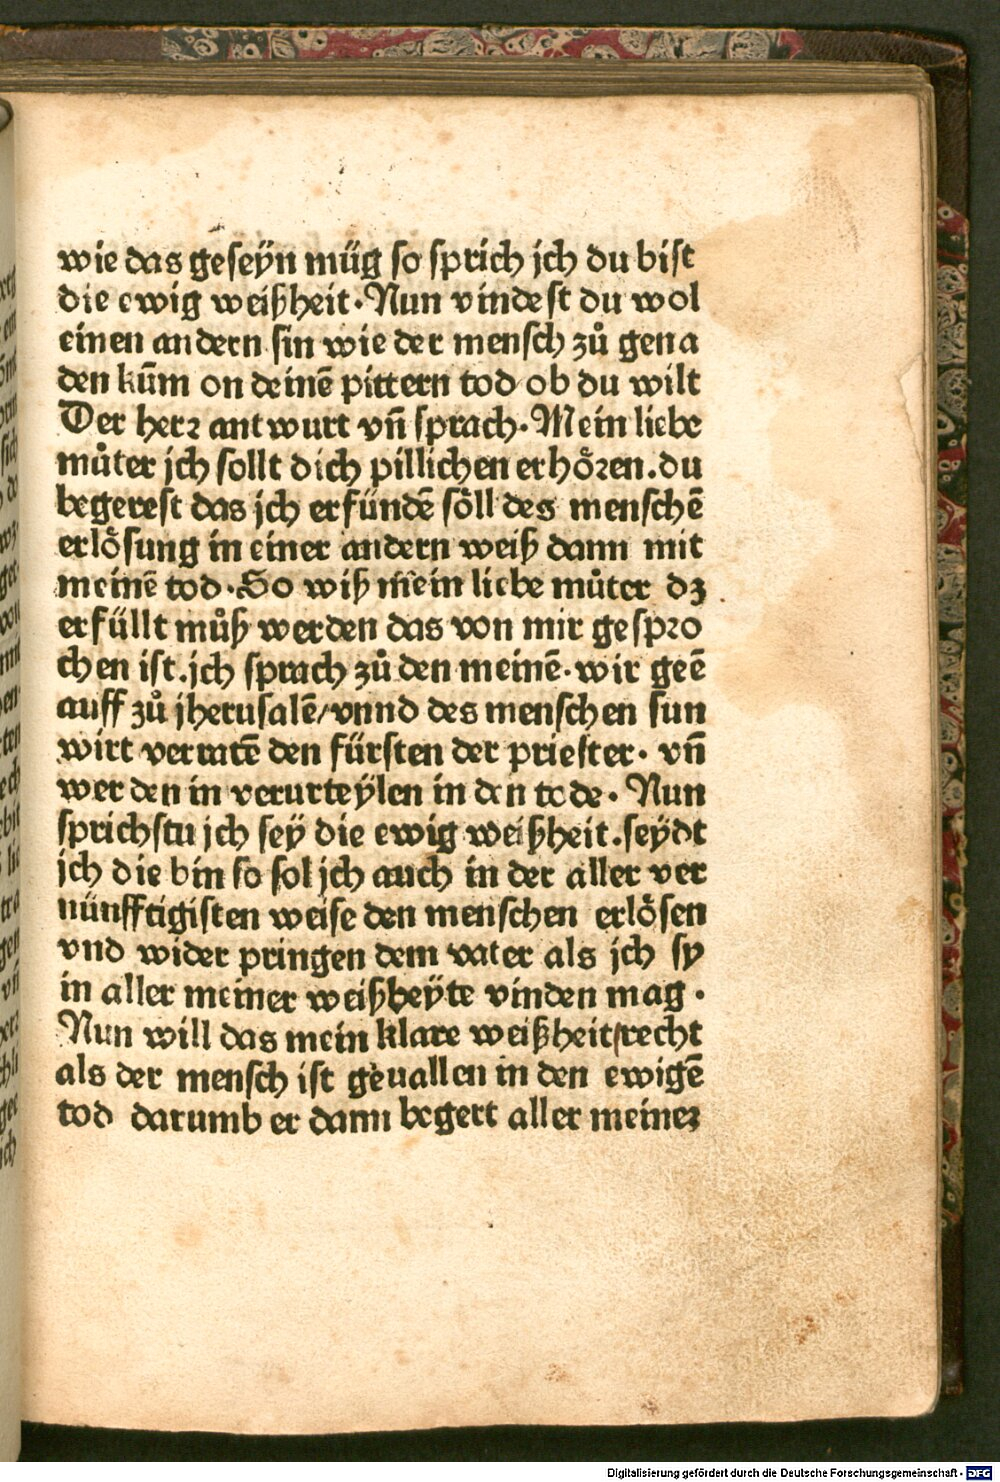 wie das geseÿn müg so sprich jch du bist
die ewig weißheit · Nun vindest du wol
einen andern sin wie der mensch zů gena
den kūm on deinē pittern tod ob du wilt
Der herꝛ antwurt vn̄ sprach · Mein liebe
můter jch sollt dich pillichen erhöꝛen . du
begerest das jch erfündē söll des menschē
erlösung in einer andern weiß dann mit
meinē tod · So wiß mein liebe můter dz
erfüllt můß werden das von mir gespꝛo
chen ist . jch sprach zů den meinē · wir geē
auff zů jherusalē / vnnd des menschen sun
wirt verratē den fürsten der priester · vn̄
werden in verurteÿlen in den tode · Nun
sprichstu jch seÿ die ewig weißheit . seÿdt
ich die bin so sol jch auch in der aller ver
nünfftigisten weise den menschen erlösen
vnd wider pringen dem vater als jch sy
in aller meiner weißheÿte vinden mag ·
Nun will das mein klare weißheit / recht
als der mensch ist geuallen in den ewigē
tod darumb er dann begert aller meineꝛ
Digitalisierung gefördert durch die Deutsche Forschungsgemeinschaft - DFG